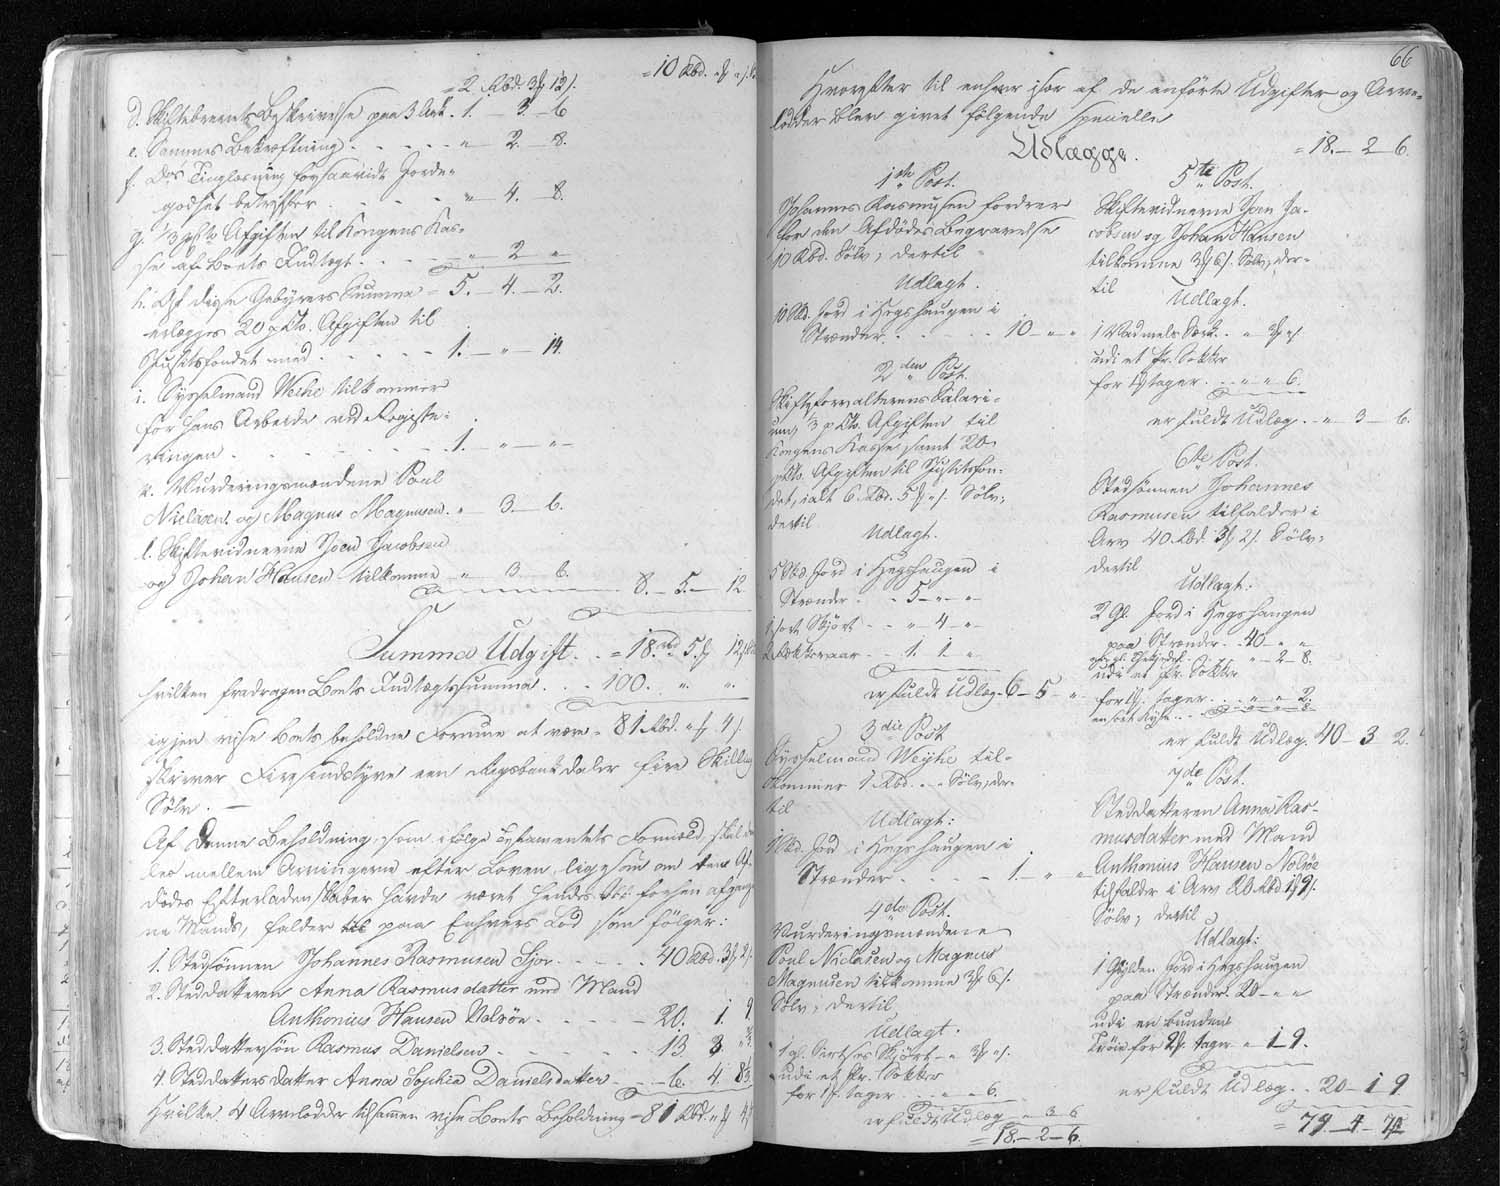 = 10 Rbd. " ß " s.
= 2 Rbd. 3ß 12 s.
d. Skiftebrevets Beskrivelse paa 3 Ark. 1. — 3. — 6
e. Sammes Bekræftning . . . . . " — 2. — 8.
f. Do's Tinglæsning forsaavidt Jorde-
godset betreffer . . . . . . " — 4. — 8.
g. 1/3 pCto Afgiften til Kongens Kas-
se af Boets Indtægt . . . . . " — 2 "
h. Af disse Gebyrers Summa = 5. — 4. — 2.
erlægges 20 pCto. Afgiften til
Justitsfondet med . . . . . 1. — " — 14.
i. Sysselmand Weihe tilkommer
for hans Arbeide ved Registe-
ringen . . . . . . . 1. " — " —
k. Vurderingsmændene Poul
Niclasen og Magnus Magnusen . " — 3 — 6.
l. Skiftevidnerne Joen Jacobsen
og Johan Hansen tilkomme " — 3 — 6. 8. — 5. — 12
Summa Udgift . . = 18. Rbd 5. ß 12 s.
hvilken fradragen Boets Indtægtssumma . . . 100. " "
igjen vise Boets beholdne Formue at være = 81 Rbd. " ß 4 s.
skriver Fiirsindstyve een Rigsbankdaler fire Skilling
Sølv. —
Af denne Beholdning, som ifølge Testamentets Formeld skal de-
les mellem Arvingerne efter Loven ligesom om den Af-
dødes Efterladenskaber havde været hendes forhen afgang-
ne Mands, falder paa Enhvers Lod som følger:
1. Stedsønnen Johannes Rasmusen Sjov . . . . 40 Rbd. 3ß 2 s.
2. Steddatteren Anna Rasmusdatter med Mand
Anthonius Hansen Nolsøe . . . . . 20. 1. 9.
3. Steddattersøn Rasmus Danielsen . . . . . 13. 3.
4. Steddatters datter Anna Sophia Danielsdatter . . 6. 4. 8 1/3
Hvilke 4 Arvelodder tilsammen vise Boets Beholdning = 81 Rbd. " ß 4 s.
66
Hvorefter til enhver især af de anførte Udgifter og Arve-
lodder blev givet følgende specielle
Udlægge.
1ste Post.
Johannes Rasmusen fordrer
for den Afdødes Begravelse
10 Rbd. Sølv; dertil
Udlagt.
10 Rbd. Jord i Hegshaugen i
Strænder . . . . 10 — " — "
2den Post.
Skifteforvalterens Salari-
um, 1/3 pCto. Afgiften til
Kongens Kasse samt 20
pCto. Afgiften til Justitsfon-
det, ialt 6 Rbd. 5 ß " s. Sølv;
dertil
Udlagt.
5 Rbd. Jord i Hegshaugen i
Strænder . . 5 — " — "
1 sort Skjørt . . " — 4 — "
2 . . 1. 1 "
er fuldt Udlæg. 6 — 5 — "
3die Post
Sysselmand Weyhe til-
kommer 1 Rbd. . . Sølv; der-
til
Udlagt:
1 Rbd. Jord i Hegshaugen i
Strænder . . . . 1. — " — "
4de Post.
Vurderingsmændene
Poul Niclasen og Magnus
Magnusen tilkomme 3ß 6 s.
Sølv; dertil
Udlagt.
1 gl. Skjørt — " 3ß " s.
udi et Pr. Sokker
for 1 ß. tager . . " — " — 6.
er fuldt Udlæg " 3 6
= 18. — 2 — 6.
= 18. — 2 — 6.
5te Post.
Skiftevidnerne Joen Ja-
cobsen og Johan Hansen
tilkomme 3ß 6 s. Sølv; der-
til
Udlagt.
1 Vadmels Særk . . " 3ß " s.
udi et Pr. Sokker
for 1ß tager . . " " 6.
er fuldt Udlæg . . " — 3 — 6.
6te Post.
Stedsønnen Johannes
Rasmusen tilfalder i
Arv 40 Rbd. 3ß 2 s. Sølv;
dertil
Udlagt:
2 Gl. Jord i Hegshaugen
paa Strænder . 40 — " — "
" — 2 — 8.
udi et Pr. Sokker
for 1 ß. tager . . " " 2.
en sort . . " " 8
er fuldt Udlæg. 40 — 3 2.
7de Post.
Steddatteren Anna Ras-
musdatter med Mand
Anthonius Hansen Nolsøe
tilfalder i Arv 20 Rbd 1ß 9 s.
Sølv; dertil
Udlagt:
1 Gylden Jord i Hegshaugen
paa Strænder . 20 — " "
udi en bunden
Trøie for 2ß. tager " 1 — 9.
er fuldt Udlæg . . 20 — 1 9
= 79. — 4 — 7